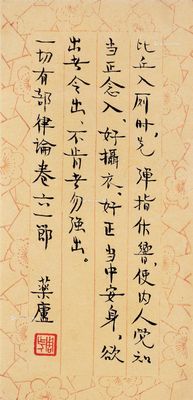 比丘入厕时，先弹指作响，使内人觉知
当正念入、好攝衣、好正当中安身，欲
出者令出、不肯者勿强出。
一切有部律论卷六一節
藥廬